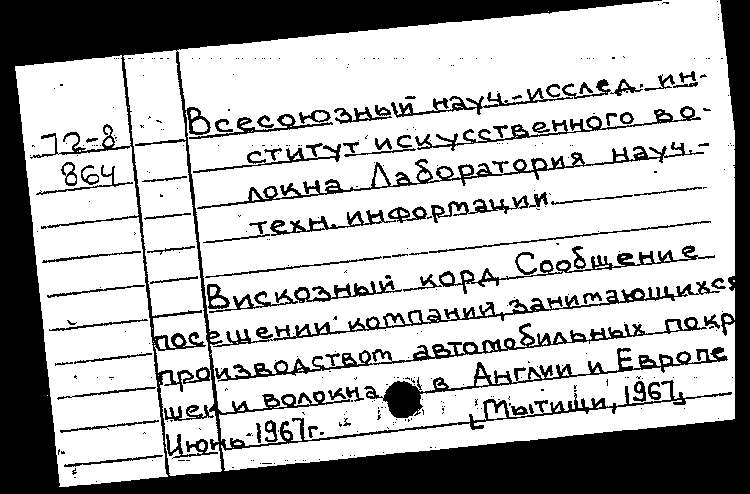 72-8
864
Всесоюзный науч.-исслед. ин-
ститут искусственного во-
локна. Лаборатория науч.-
техн. информации.
Вискозный корд. Сообщение
посещении компаний, занимающихся
производством автомобильных покр
шек и волокна в Англии и Европе
Июнь 1967г. [Мытищи, 1967]